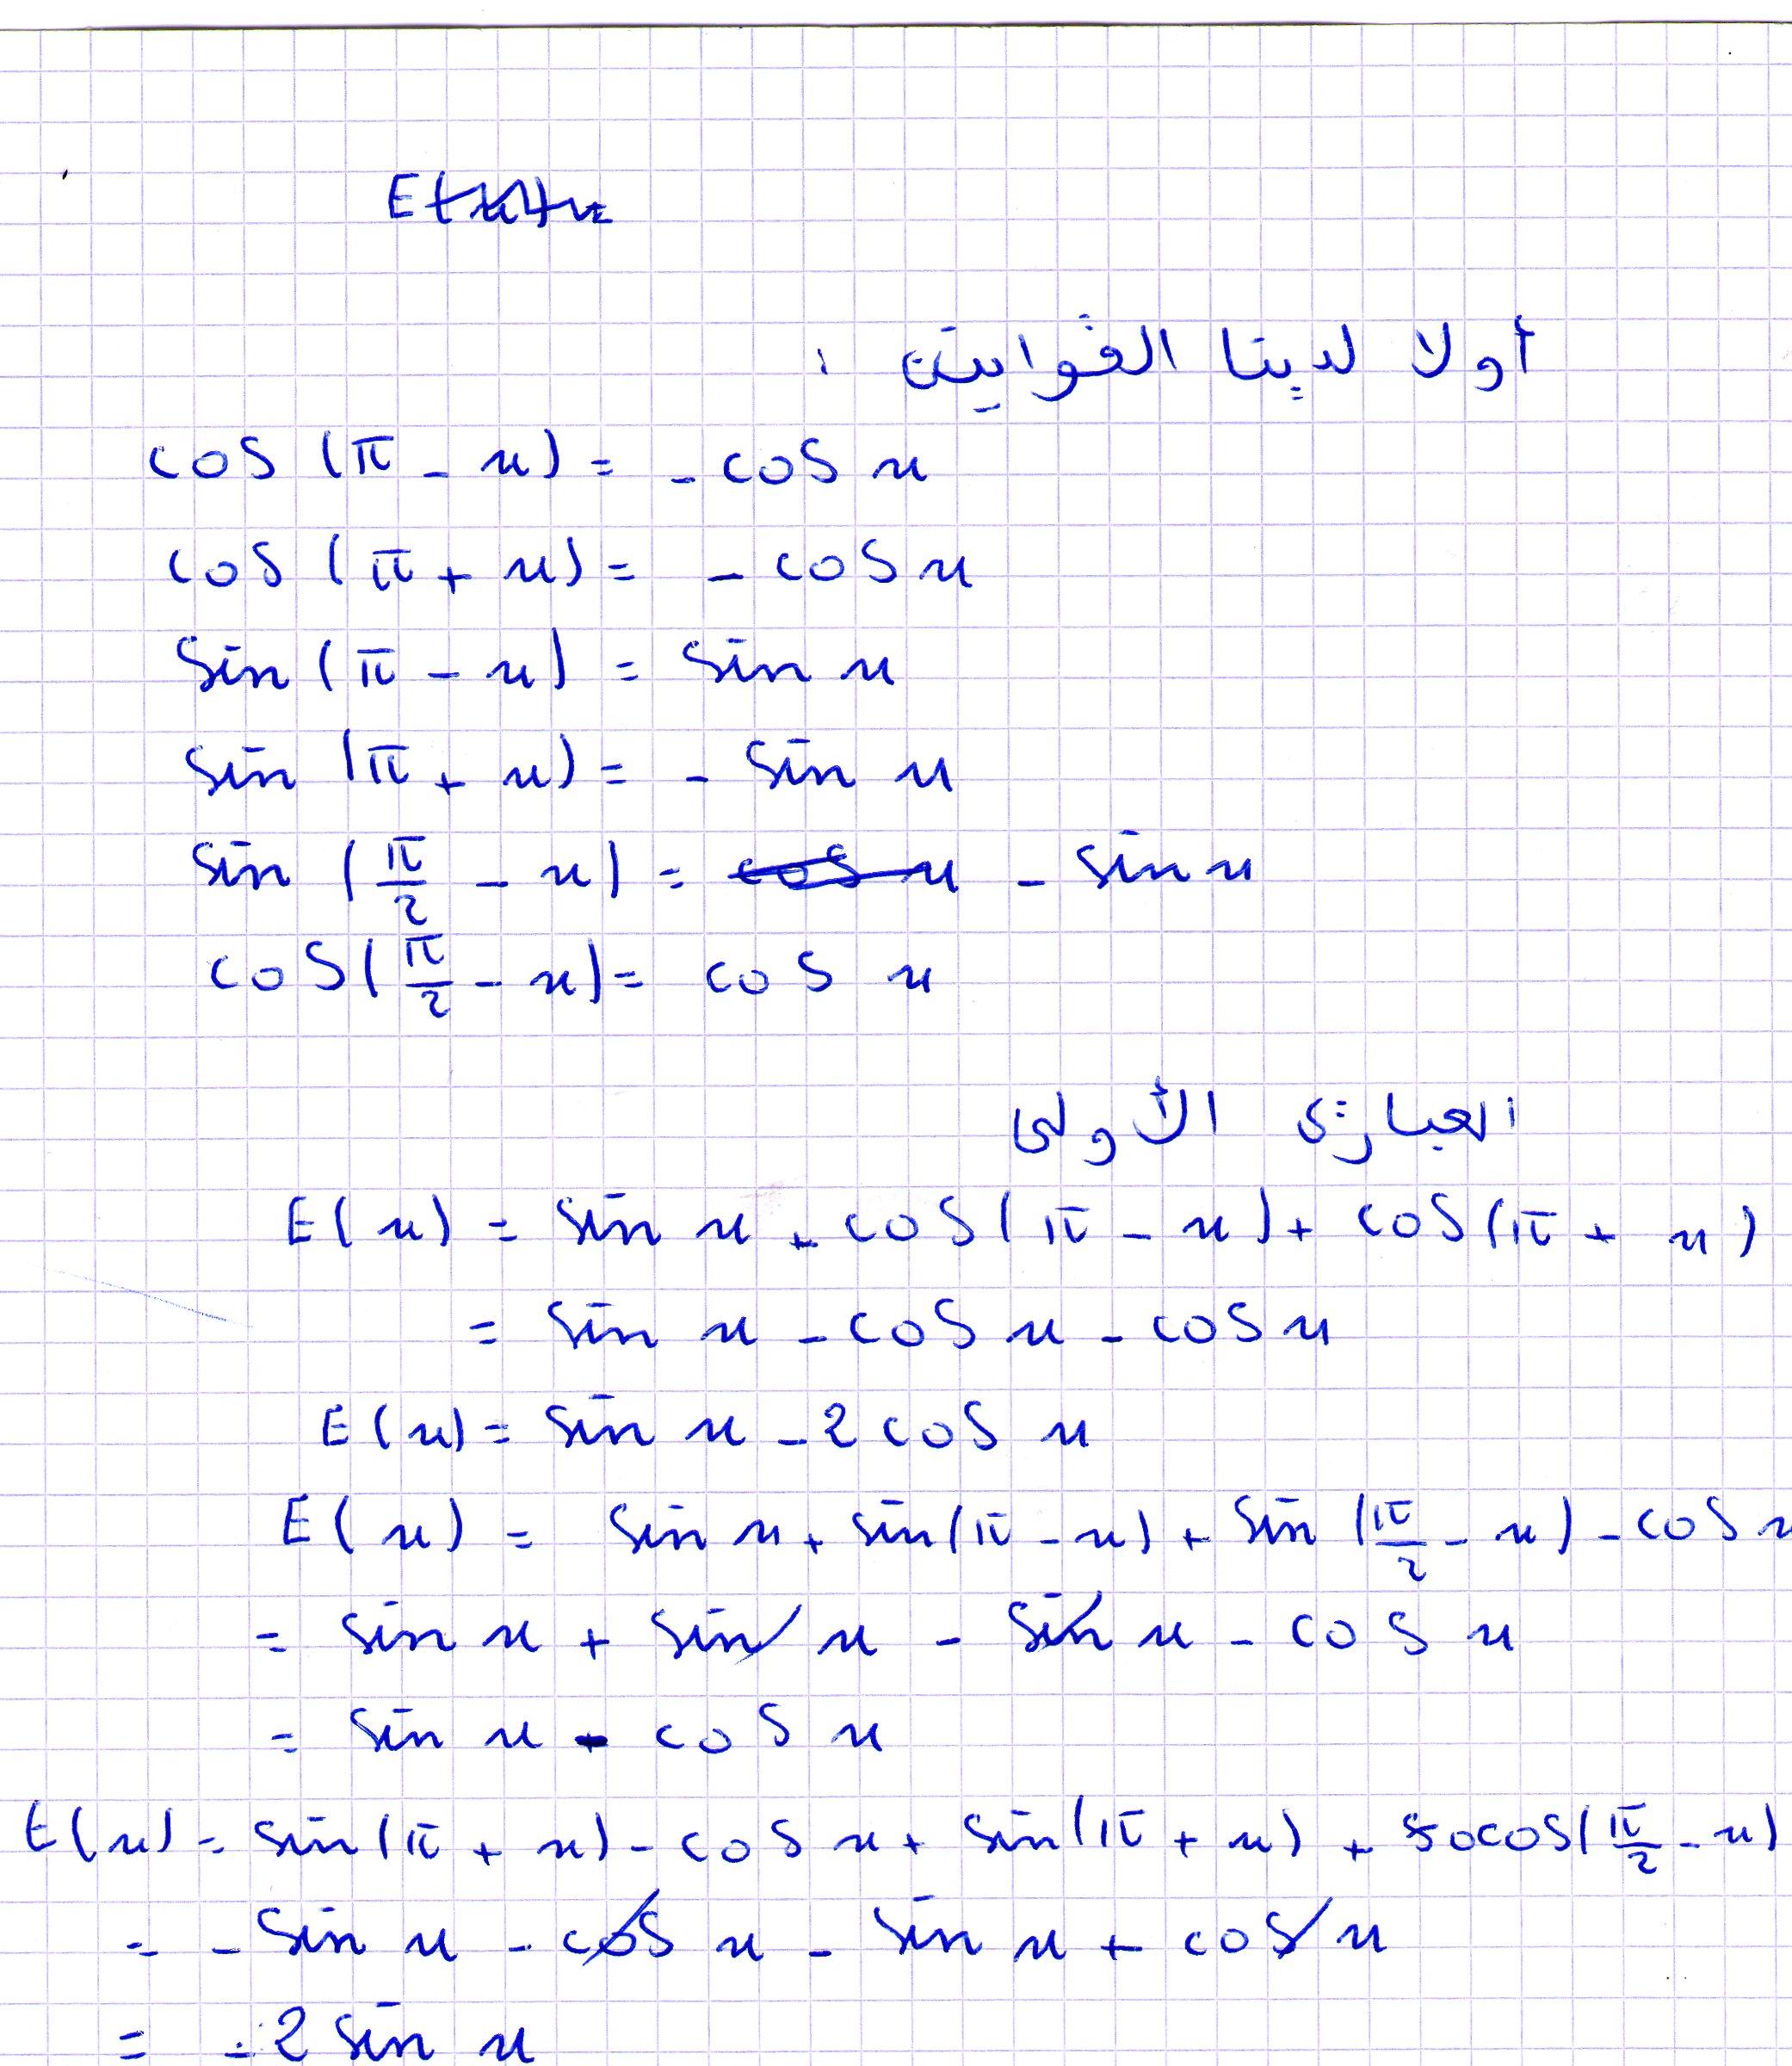 أولا لدينا الثوابت :
cos (π - x) = - cos x
cos (π + x) = - cos x
sin (π - x) = sin x
sin (π + x) = - sin x
sin (π/2 - x) = cos x - sin x
cos (π/2 - x) = cos x
العبارة الأولى
E(x) = sin x + cos(π - x) + cos(π + x)
= sin x - cos x - cos x
E(x) = sin x - 2 cos x
E(x) = sin x + sin(π - x) + sin(π/2 - x) - cos x
= sin x + sin x - sin x - cos x
= sin x - cos x
E(x) = sin(π + x) - cos x + sin(π + x) + cos(π/2 - x)
= - sin x - cos x - sin x + cos x
= - 2 sin x